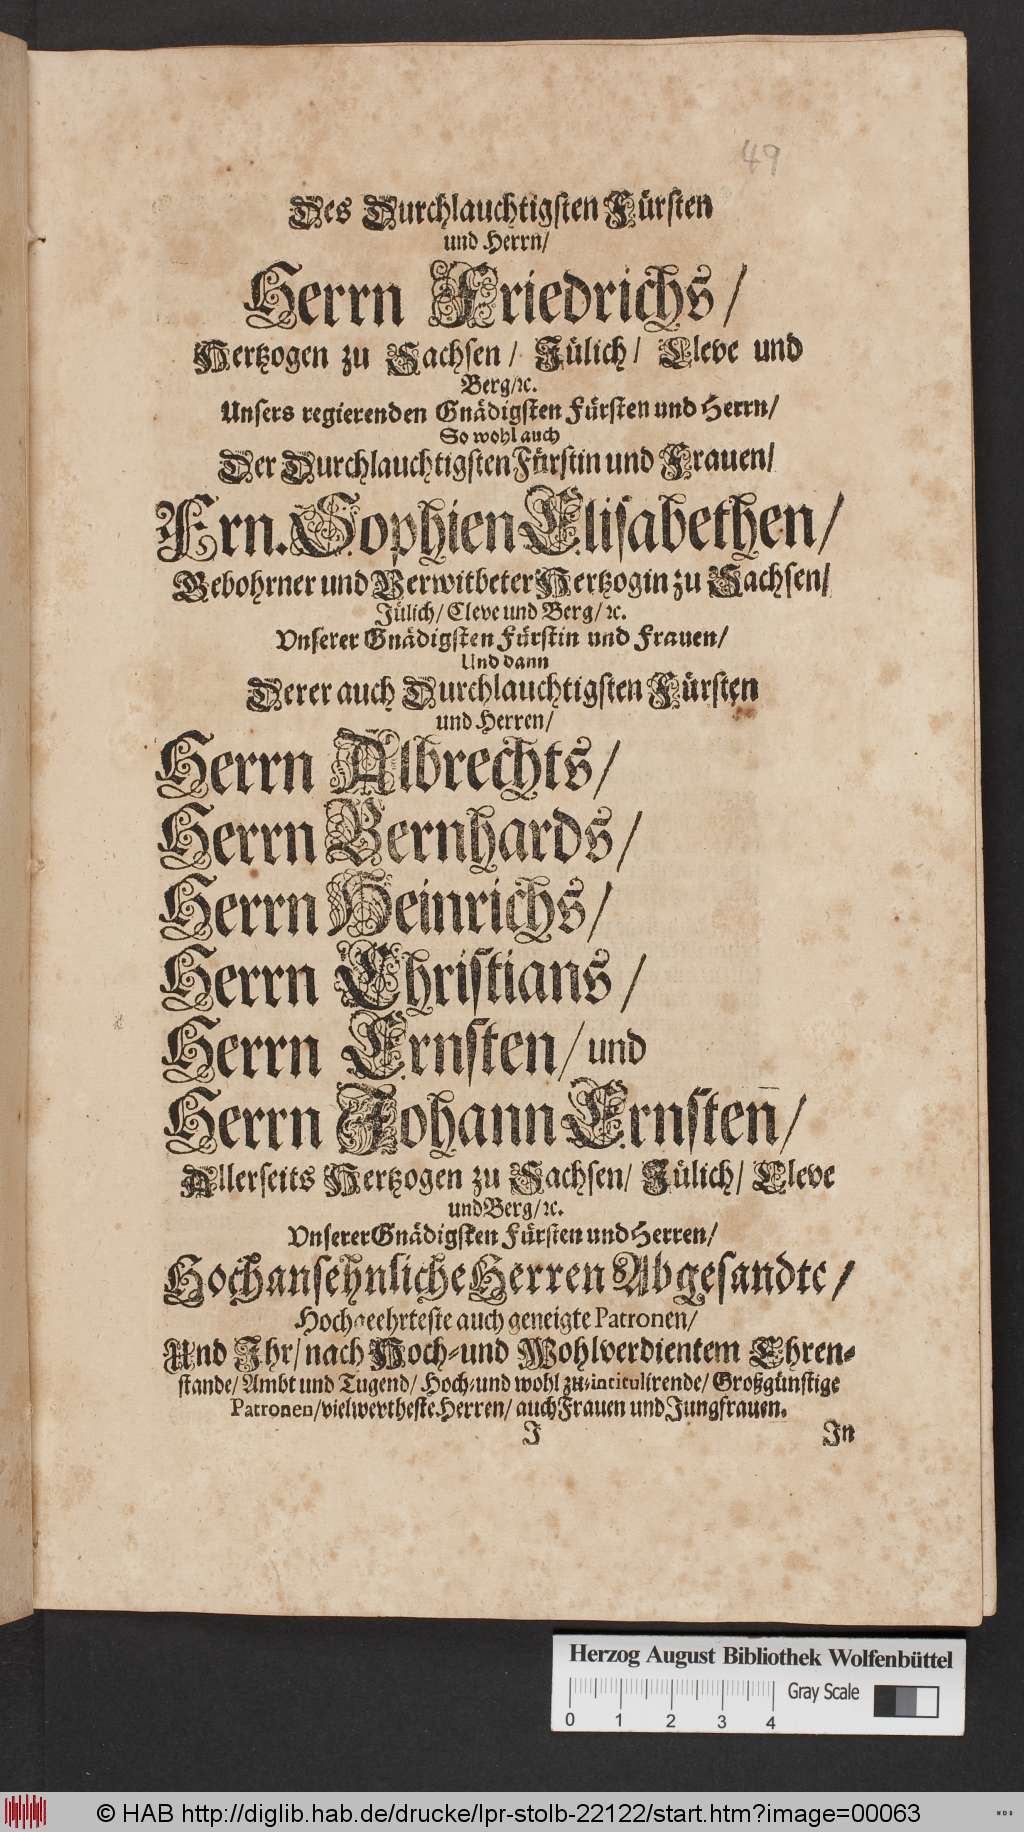 49
Des Durchlauchtigsten Fürsten
und Herrn/
Herrn Friedrichs/
Hertzogen zu Sachsen/ Jülich/ Cleve und
Berg/ꝛc.
Unsers regierenden Gnädigsten Fürsten und Herrn/
So wohl auch
Der Durchlauchtigsten Fürstin und Frauen/
Frn. Sophien Elisabethen/
Gebohrner und Verwitbeter Hertzogin zu Sachsen/
Jülich/ Cleve und Berg/ ꝛc.
Vnserer Gnädigsten Fürstin und Frauen/
Und dann
Derer auch Durchlauchtigsten Fürsten
und Herren/
Herrn Albrechts/
Herrn Bernhards/
Herrn Heinrichs/
Herrn Christians/
Herrn Ernsten/ und
Herrn Johann Ernsten̄/
Allerseits Hertzogen zu Sachsen/ Jülich/ Cleve
und Berg/ꝛc.
Vnserer Gnädigsten Fürsten und Herren/
Hochansehnliche Herren Abgesandte/
Hochgeehrteste auch geneigte Patronen/
Und Ihr/ nach Hoch-und Wohlverdientem Ehren-
stande/ Ambt und Tugend/ Hoch-und wohl zu-intitulirende/ Großgünstige
Patronen/ vielwertheste Herren/ auch Frauen und Jungfrauen.
J
In
Herzog August Bibliothek Wolfenbüttel
Gray Scale
0 1 2 3 4
© HAB http://diglib.hab.de/drucke/lpr-stolb-22122/start.htm?image=00063